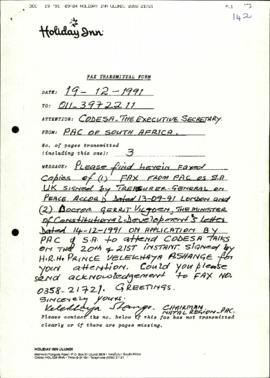 DEC 19 '91 09:04 HOLIDAY INN ULUNDI 0358 21721 P.1
142
Holiday Inn
FAX TRANSMITTAL FORM
DATE: 19-12-1991
TO: 011-3972211
ATTENTION: CODESA. THE EXECUTIVE SECRETARY.
FROM: PAC OF SOUTH AFRICA.
No. of pages transmitted
(including this one): 3
MESSAGE: Please find herein faxed
Copies of (1) FAX FROM PAC OF S.A.
UK SIGNED BY TREASURER-GENERAL ON
PEACE ACCORD, Dated 13-09-91 LONDON and
(2) DOCTOR GERRIT VILJOEN, THE MINISTER
of CONSTITUTIONAL DEVELOPMENT'S Letter
Dated 14-12-1991 ON APPLICATION BY
PAC of S.A. to attend CODESA TALKS
ON THE 20TH & 21ST INSTANT SIGNED BY
H.R.H. PRINCE VELEKHAYA SHANGE FOR
your attention. Could you please
send acknowledgement to FAX NO.
0358-21721. GREETINGS.
SINCERELY YOURS.
Velekhaya Shange. CHAIRMAN
NATAL REGION. PAC.
Please contact the no. below if this fax has not transmitted
clearly or if there are pages missing.
HOLIDAY INN ULUNDI